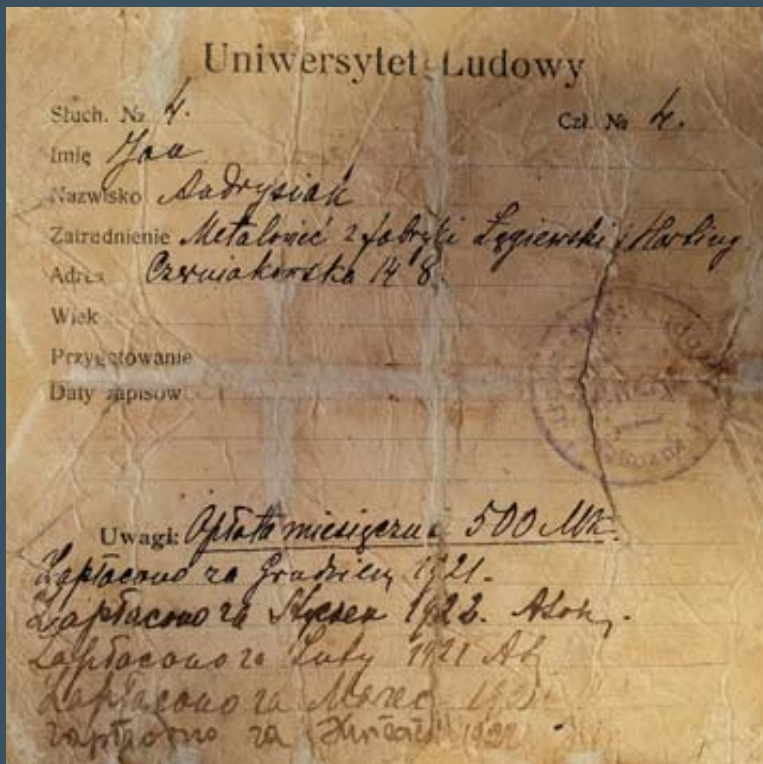 Uniwersytet Ludowy
Słuch. № 4. Czł. № 4.
Imię Jan
Nazwisko Andrysiak
Zatrudnienie Metalowiec z fabryki
Adres Czerniakowska 14 8.
Wiek
Przygotowanie
Daty zapisów
Uwagi: Opłata miesięczna 500 Mk.
Zapłacono za Grudzień 1921.
Zapłacono za Styczeń 1922.
Zapłacono za Luty 1921
Zapłacono za Marzec
Zapłacono za Kwiecień 1922